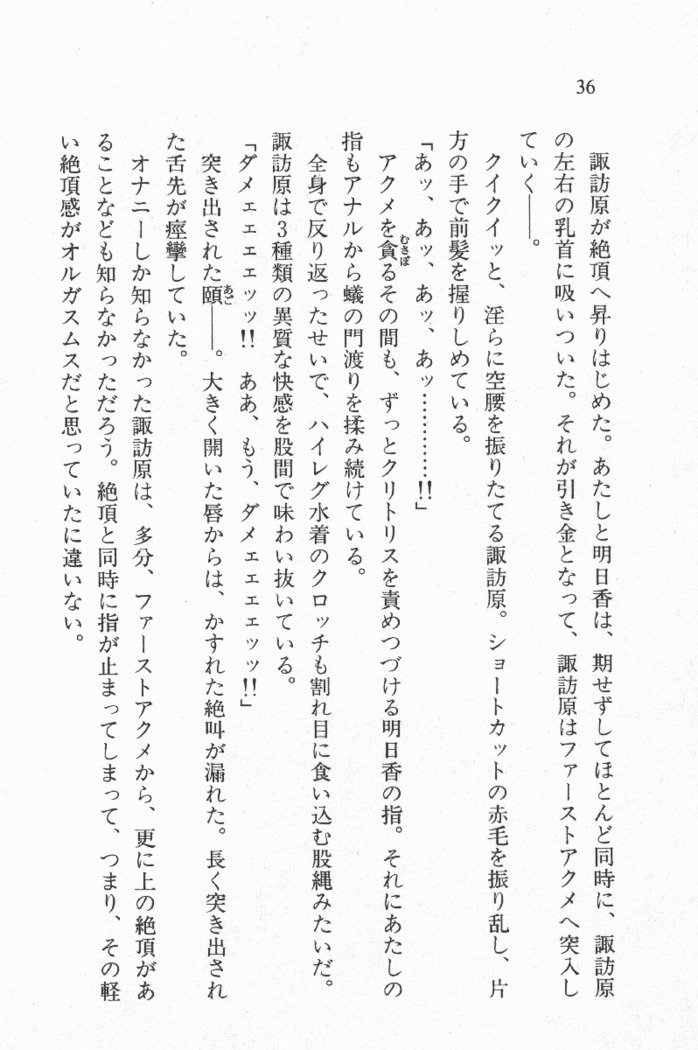 36
諏訪原が絶頂へ昇りはじめた。あたしと明日香は、期せずしてほとんど同時に、諏訪原
の左右の乳首に吸いついた。それが引き金となって、諏訪原はファーストアクメへ突入し
ていく――。
クイクイッと、淫らに空腰を振りたてる諏訪原。ショートカットの赤毛を振り乱し、片
方の手で前髪を握りしめている。
「あッ、あッ、あッ、あッ…………!!」
アクメを貪るその間も、ずっとクリトリスを責めつづける明日香の指。それにあたしの
指もアナルから蟻の門渡りを揉み続けている。
全身で反り返ったせいで、ハイレグ水着のクロッチも割れ目に食い込む股縄みたいだ。
諏訪原は3種類の異質な快感を股間で味わい抜いている。
「ダメェエエエッッ!! ああ、もう、ダメェエエエッッ!!」
突き出された頤――。大きく開いた唇からは、かすれた絶叫が漏れた。長く突き出され
た舌先が痙攣していた。
オナニーしか知らなかった諏訪原は、多分、ファーストアクメから、更に上の絶頂があ
ることなども知らなかっただろう。絶頂と同時に指が止まってしまって、つまり、その軽
い絶頂感がオルガスムスだと思っていたに違いない。